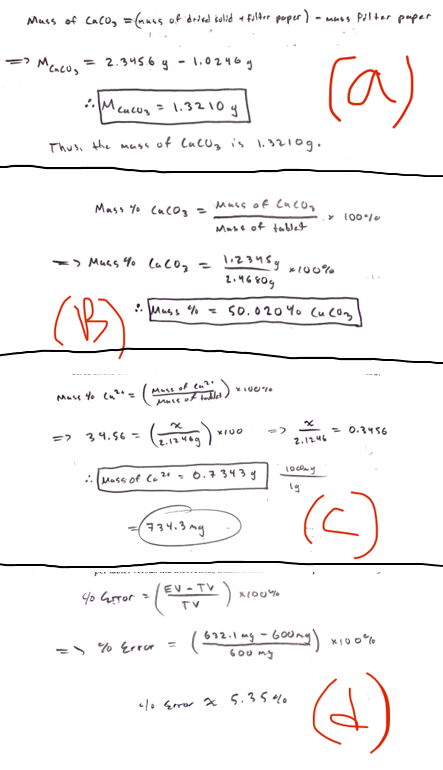 Mass of CaCO₃ = (mass of dried solid + filter paper) - mass filter paper
=> M CaCO₃ = 2.3456 g - 1.0246 g
∴ M CaCO₃ = 1.3210 g
(a)
Thus, the mass of CaCO₃ is 1.3210g.
Mass % CaCO₃ = Mass of CaCO₃ / Mass of tablet × 100%
=> Mass % CaCO₃ = 1.2345g / 2.4680g × 100%
(B)
∴ Mass % = 50.020% CaCO₃
Mass % Ca²⁺ = (Mass of Ca²⁺ / Mass of tablet) × 100%
=> 34.56 = (x / 2.1246g) × 100 => x / 2.1246 = 0.3456
∴ Mass of Ca²⁺ = 0.7343 g 1000mg / 1g
= 734.3 mg
(C)
% Error = (EV - TV / TV) × 100%
=> % Error = (632.1 mg - 600mg / 600 mg) × 100%
% Error ≈ 5.35%
(d)